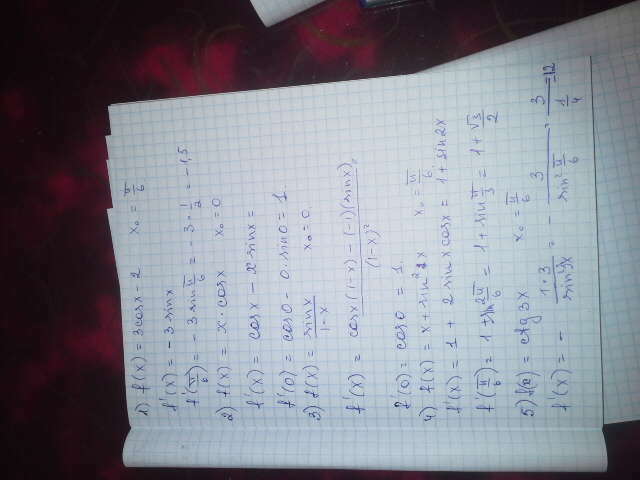 1) f(x) = 3cosx - 2 x₀ = π/6
f'(x) = -3 sinx
f'(π/6) = -3 sin π/6 = -3 · 1/2 = -1,5
2) f(x) = x · cosx x₀ = 0
f'(x) = cosx - x sinx =
f'(0) = cos0 - 0 · sin0 = 1.
3) f(x) = sinx/(1-x) x₀ = 0
f'(x) = (cosx(1-x) - (-1)(sinx))/(1-x)²
f'(0) = cos0 = 1.
4) f(x) = x + sin² x x₀ = π/6
f'(x) = 1 + 2 sinx cosx = 1 + sin2x
f'(π/6) = 1 + sin 2π/6 = 1 + sin π/3 = 1 + √3/2
5) f(x) = ctg 3x x₀ = π/6
f'(x) = - 1·3/sin² x = - 3/sin² π/6 = 3/(1/4) = 12